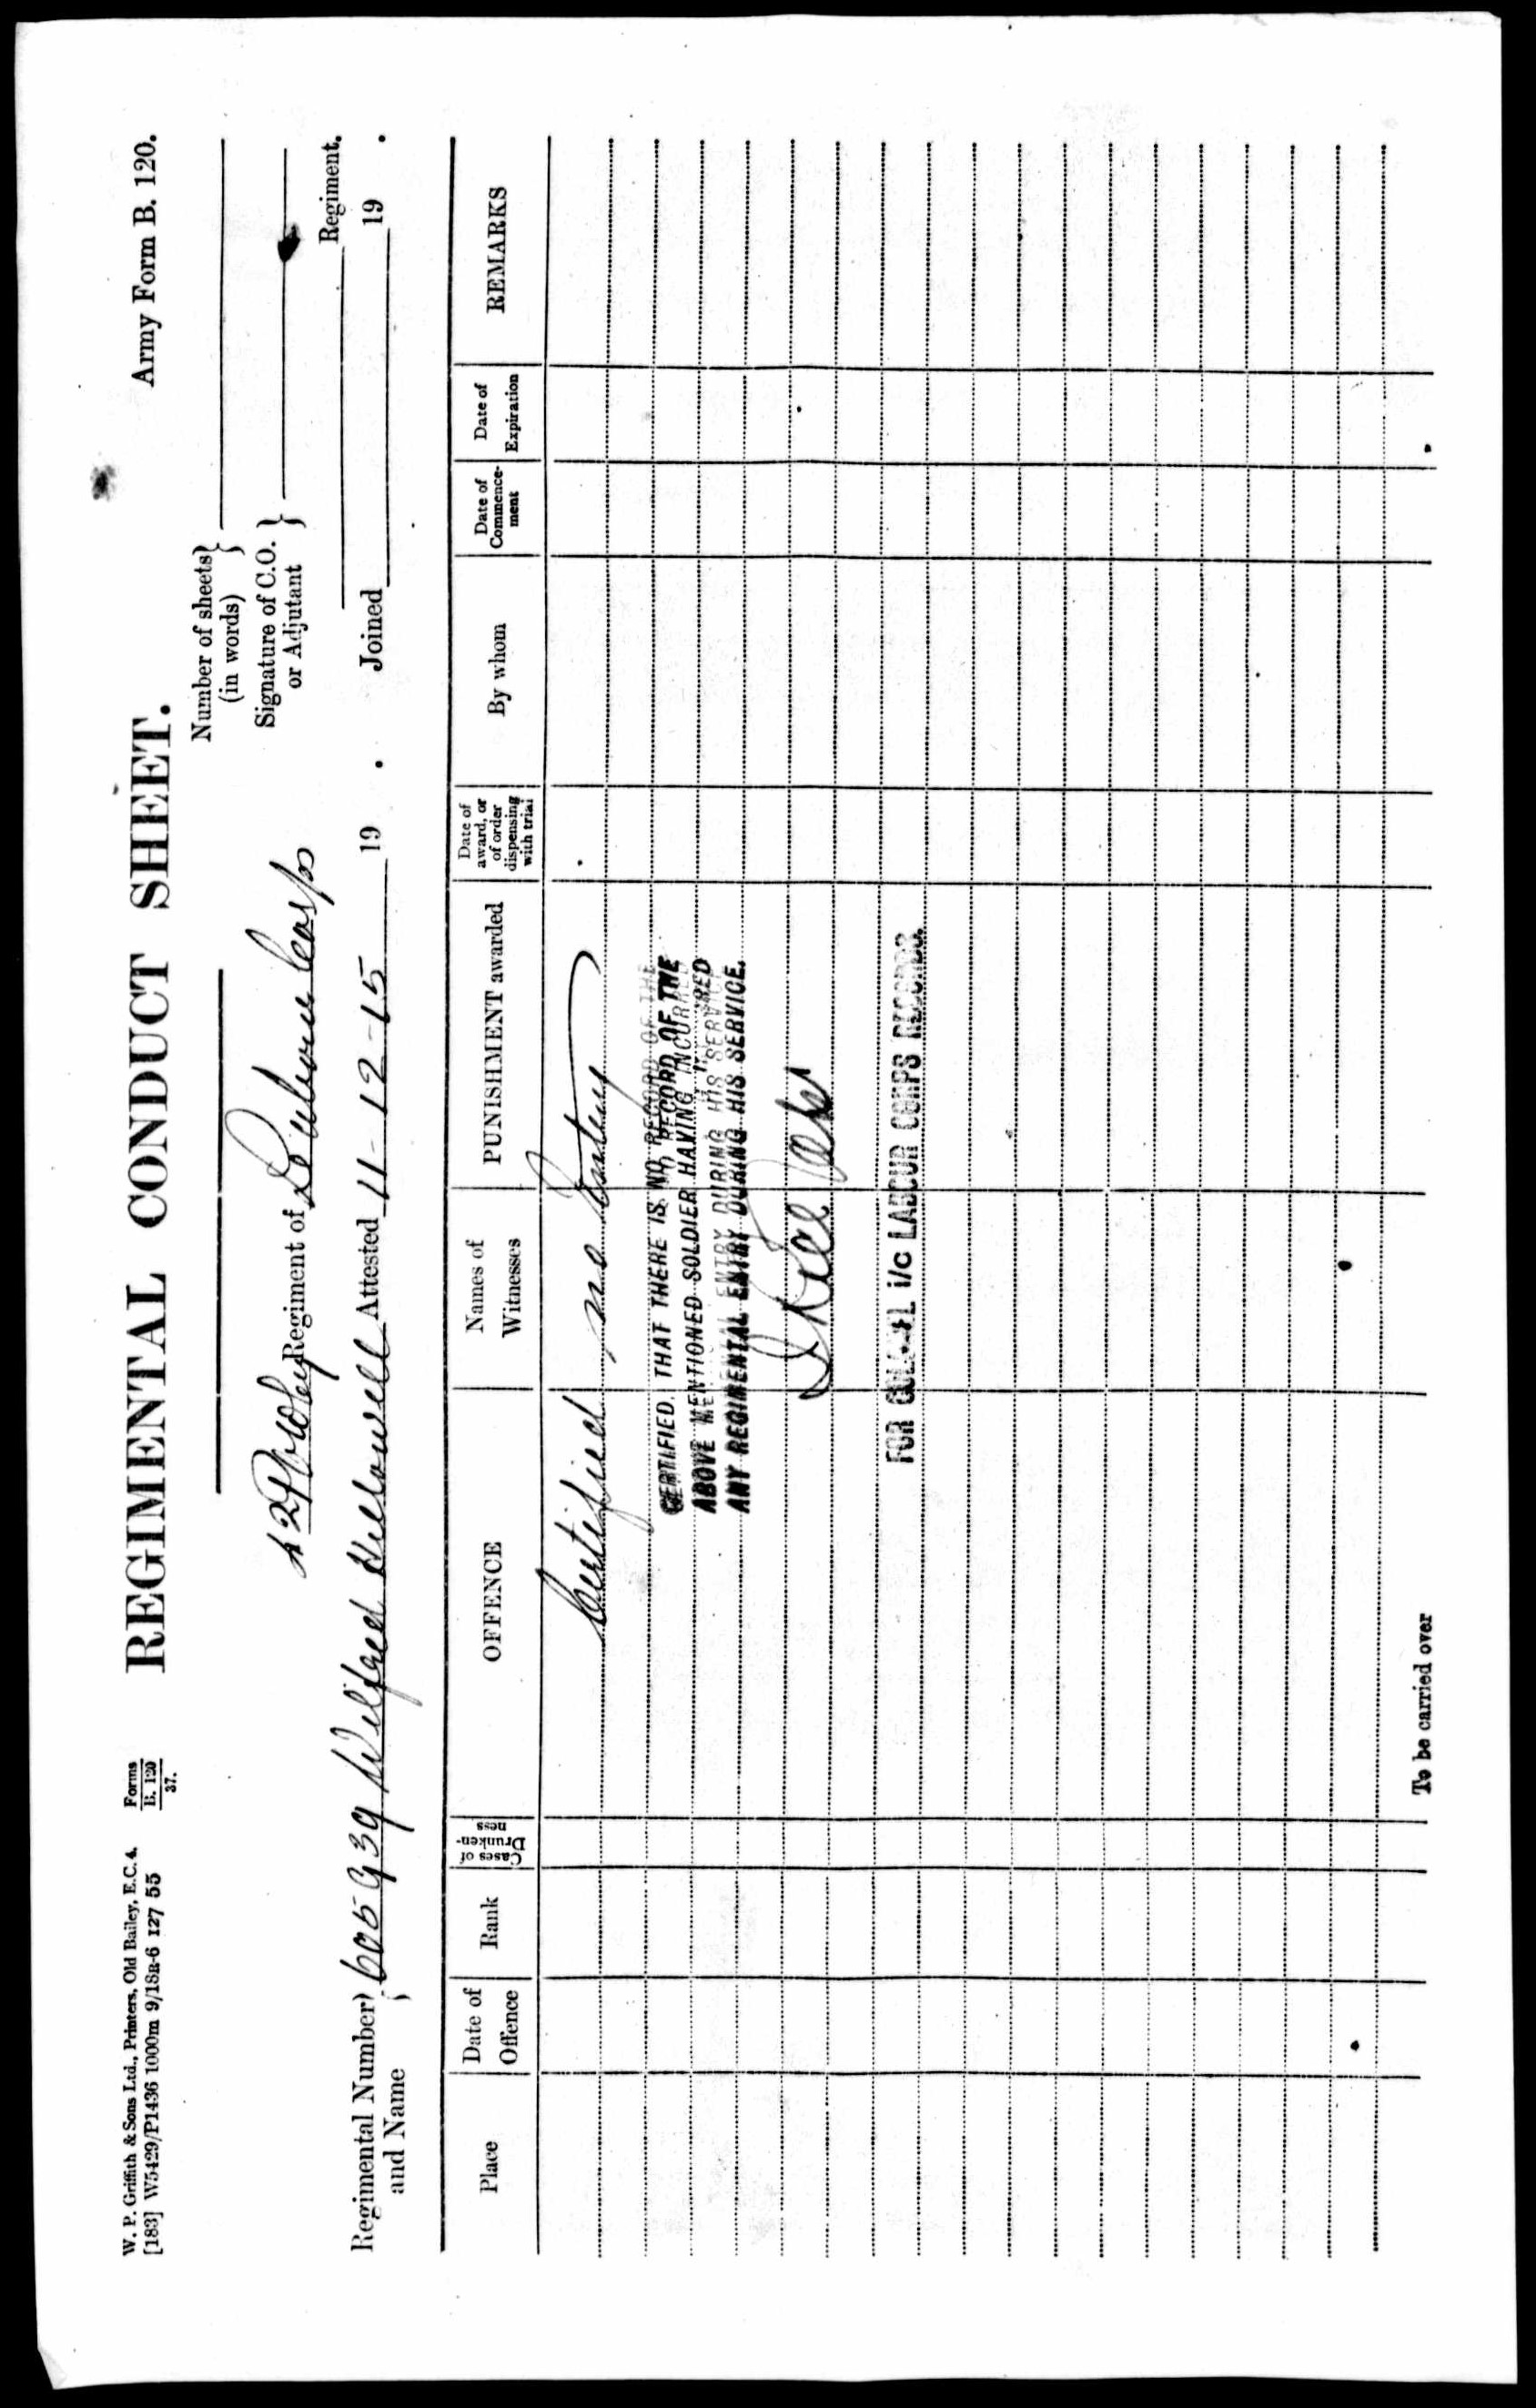 W. P. Griffith & Sons Ltd., Printers, Old Bailey, E.C.4.
[183] W5429/P1436 1000m 9/18R-6 127 55
Forms
B. 120
37.
REGIMENTAL CONDUCT SHEET.
Army Form B. 120.
Number of sheets
(in words)
Signature of C.O.
or Adjutant
Regiment of Labour Corps
Regiment.
Regimental Number
and Name
605939 Wilfred Hellowell Attested 11-12-15 19 .
Joined 19 .
Place
Date of
Offence
Rank
Cases of
Drunken-
ness
OFFENCE
Names of
Witnesses
PUNISHMENT awarded
Date of
award, or
of order
dispensing
with trial
By whom
Date of
Commence-
ment
Date of
Expiration
REMARKS
Certified no Entry
CERTIFIED. THAT THERE IS NO RECORD OF THE
ABOVE MENTIONED SOLDIER HAVING INCURRED
ANY REGIMENTAL ENTRY DURING HIS SERVICE.
FOR COLONEL i/c LABOUR CORPS RECORDS.
To be carried over